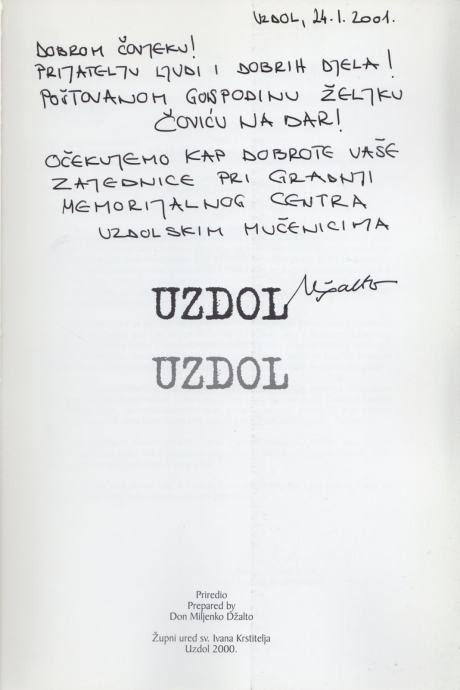 UZDOL, 24.1.2001.
DOBROM ČOVJEKU!
PRIJATELJU LJUDI I DOBRIH DJELA!
POŠTOVANOM GOSPODINU ŽELJKU
ČOVIĆU NA DAR!
OČEKUJEMO KAP DOBROTE VAŠE
ZAJEDNICE PRI GRADNJI
MEMORIJALNOG CENTRA
UZDOLSKIM MUČENICIMA
MDžalto
UZDOL
UZDOL
Priredio
Prepared by
Don Miljenko Džalto
Župni ured sv. Ivana Krstitelja
Uzdol 2000.